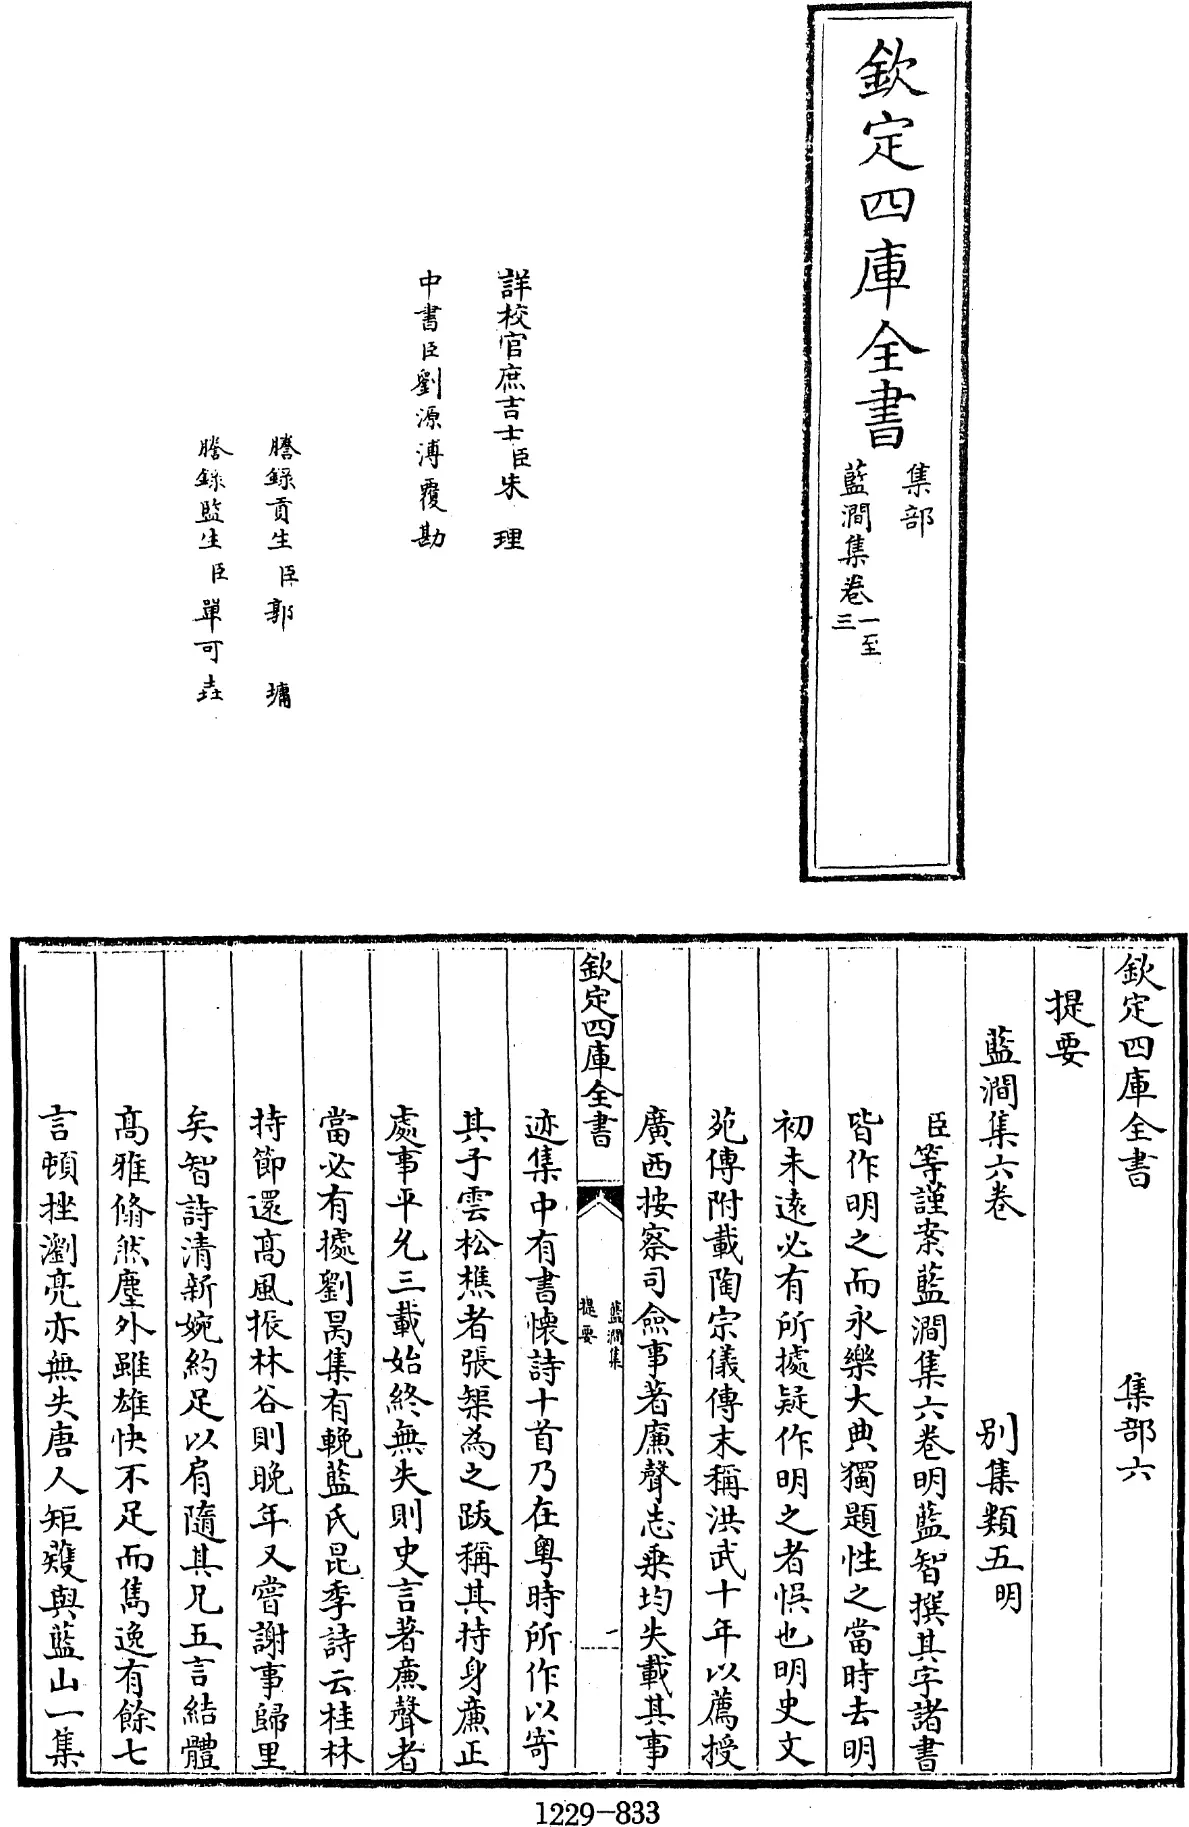 欽定四庫全書
集部
藍澗集卷一至三
詳校官庶吉士臣朱理
中書臣劉源溥覆勘
謄錄貢生臣郭墉
謄錄監生臣單可垚
欽定四庫全書 集部六
提要
藍澗集六卷 別集類五明
臣等謹案藍澗集六卷明藍智撰其字諸書
皆作明之而永樂大典獨題性之當時去明
初未遠必有所據疑作明之者悞也明史文
苑傳附載陶宗儀傳末稱洪武十年以薦授
廣西按察司僉事著廉聲志乗均失載其事
欽定四庫全書
藍澗集
提要
一
迹集中有書懷詩十首乃在粤時所作以寄
其子雲松樵者張榘為之跋稱其持身廉正
處事平允三載始終無失則史言著廉聲者
當必有據劉昺集有輓藍氏昆季詩云桂林
持節還高風振林谷則晚年又嘗謝事歸里
矣智詩清新婉約足以肩隨其兄五言結體
高雅翛然塵外雖雄快不足而雋逸有餘七
言頓挫瀏亮亦無失唐人矩矱與藍山一集
1229-833